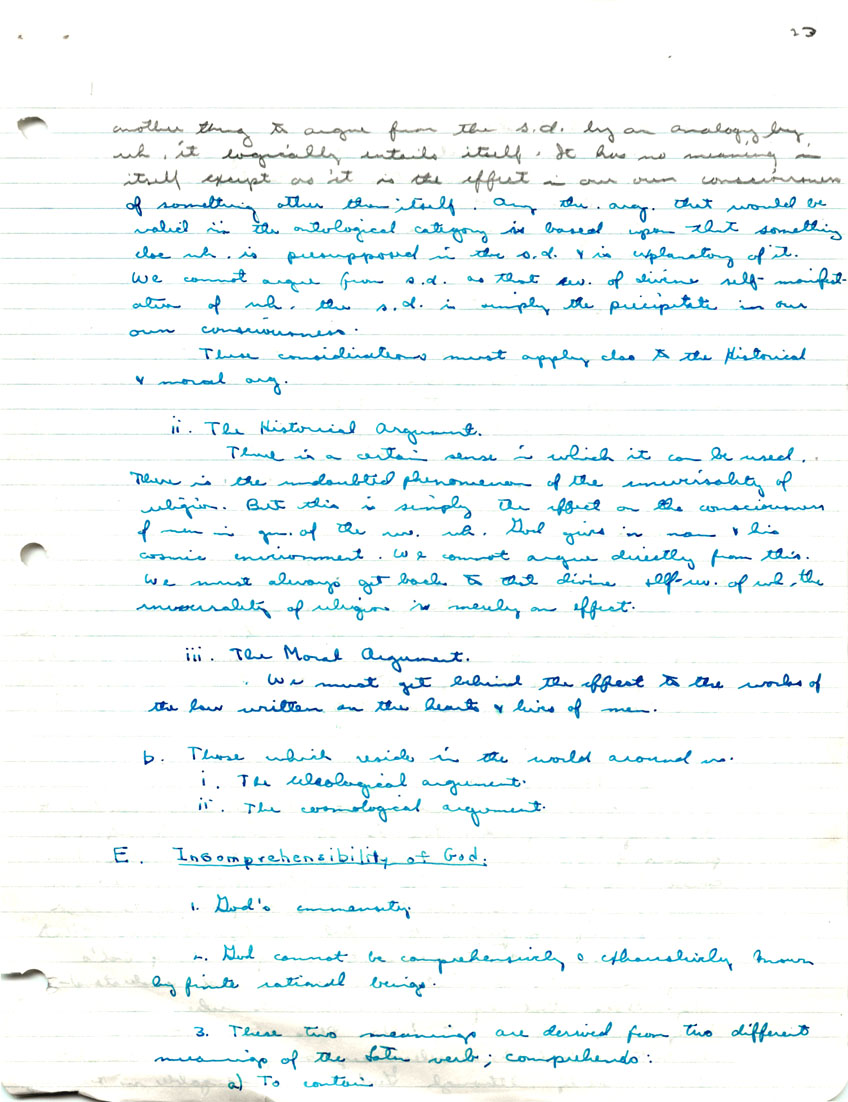 23
another thing to argue from the s.d. by an analogy by
wh. it logically entails itself. It has no meaning in
itself except as it is the effect in our own consciousness
of something other than itself. Any the. arg. that would be
valid in the ontological category is based upon that something
else wh. is presupposed in the s.d. & is explanatory of it.
We cannot argue from s.d. as that rev. of divine self-manifest-
ation of wh. the s.d. is simply the precipitate in our
own consciousness.
These considerations must apply also to the Historical
& moral arg.
ii. The Historical Argument.
There is a certain sense in which it can be used.
There is the undoubted phenomenon of the universality of
religion. But this is simply the effect on the consciousness
of men in gen. of the rev. wh. God gives in man & his
cosmic environment. We cannot argue directly from this.
We must always get back to that divine self-rev. of wh. the
universality of religion is merely an effect.
iii. The Moral Argument.
We must get behind the effect to the works of
the law written on the hearts & lives of men.
b. Those which reside in the world around us.
i. The teleological argument.
ii. The cosmological argument.
E. Incomprehensibility of God.
1. God's immensity.
2. God cannot be comprehensively & exhaustively known
by finite rational beings.
3. These two meanings are derived from two different
meanings of the Latin verb; comprehendo:
a) To contain